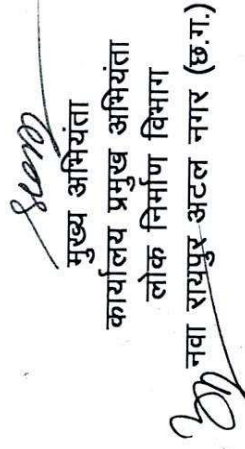 मुख्य अभियंता
कार्यालय प्रमुख अभियंता
लोक निर्माण विभाग
नवा रायपुर अटल नगर (छ.ग.)